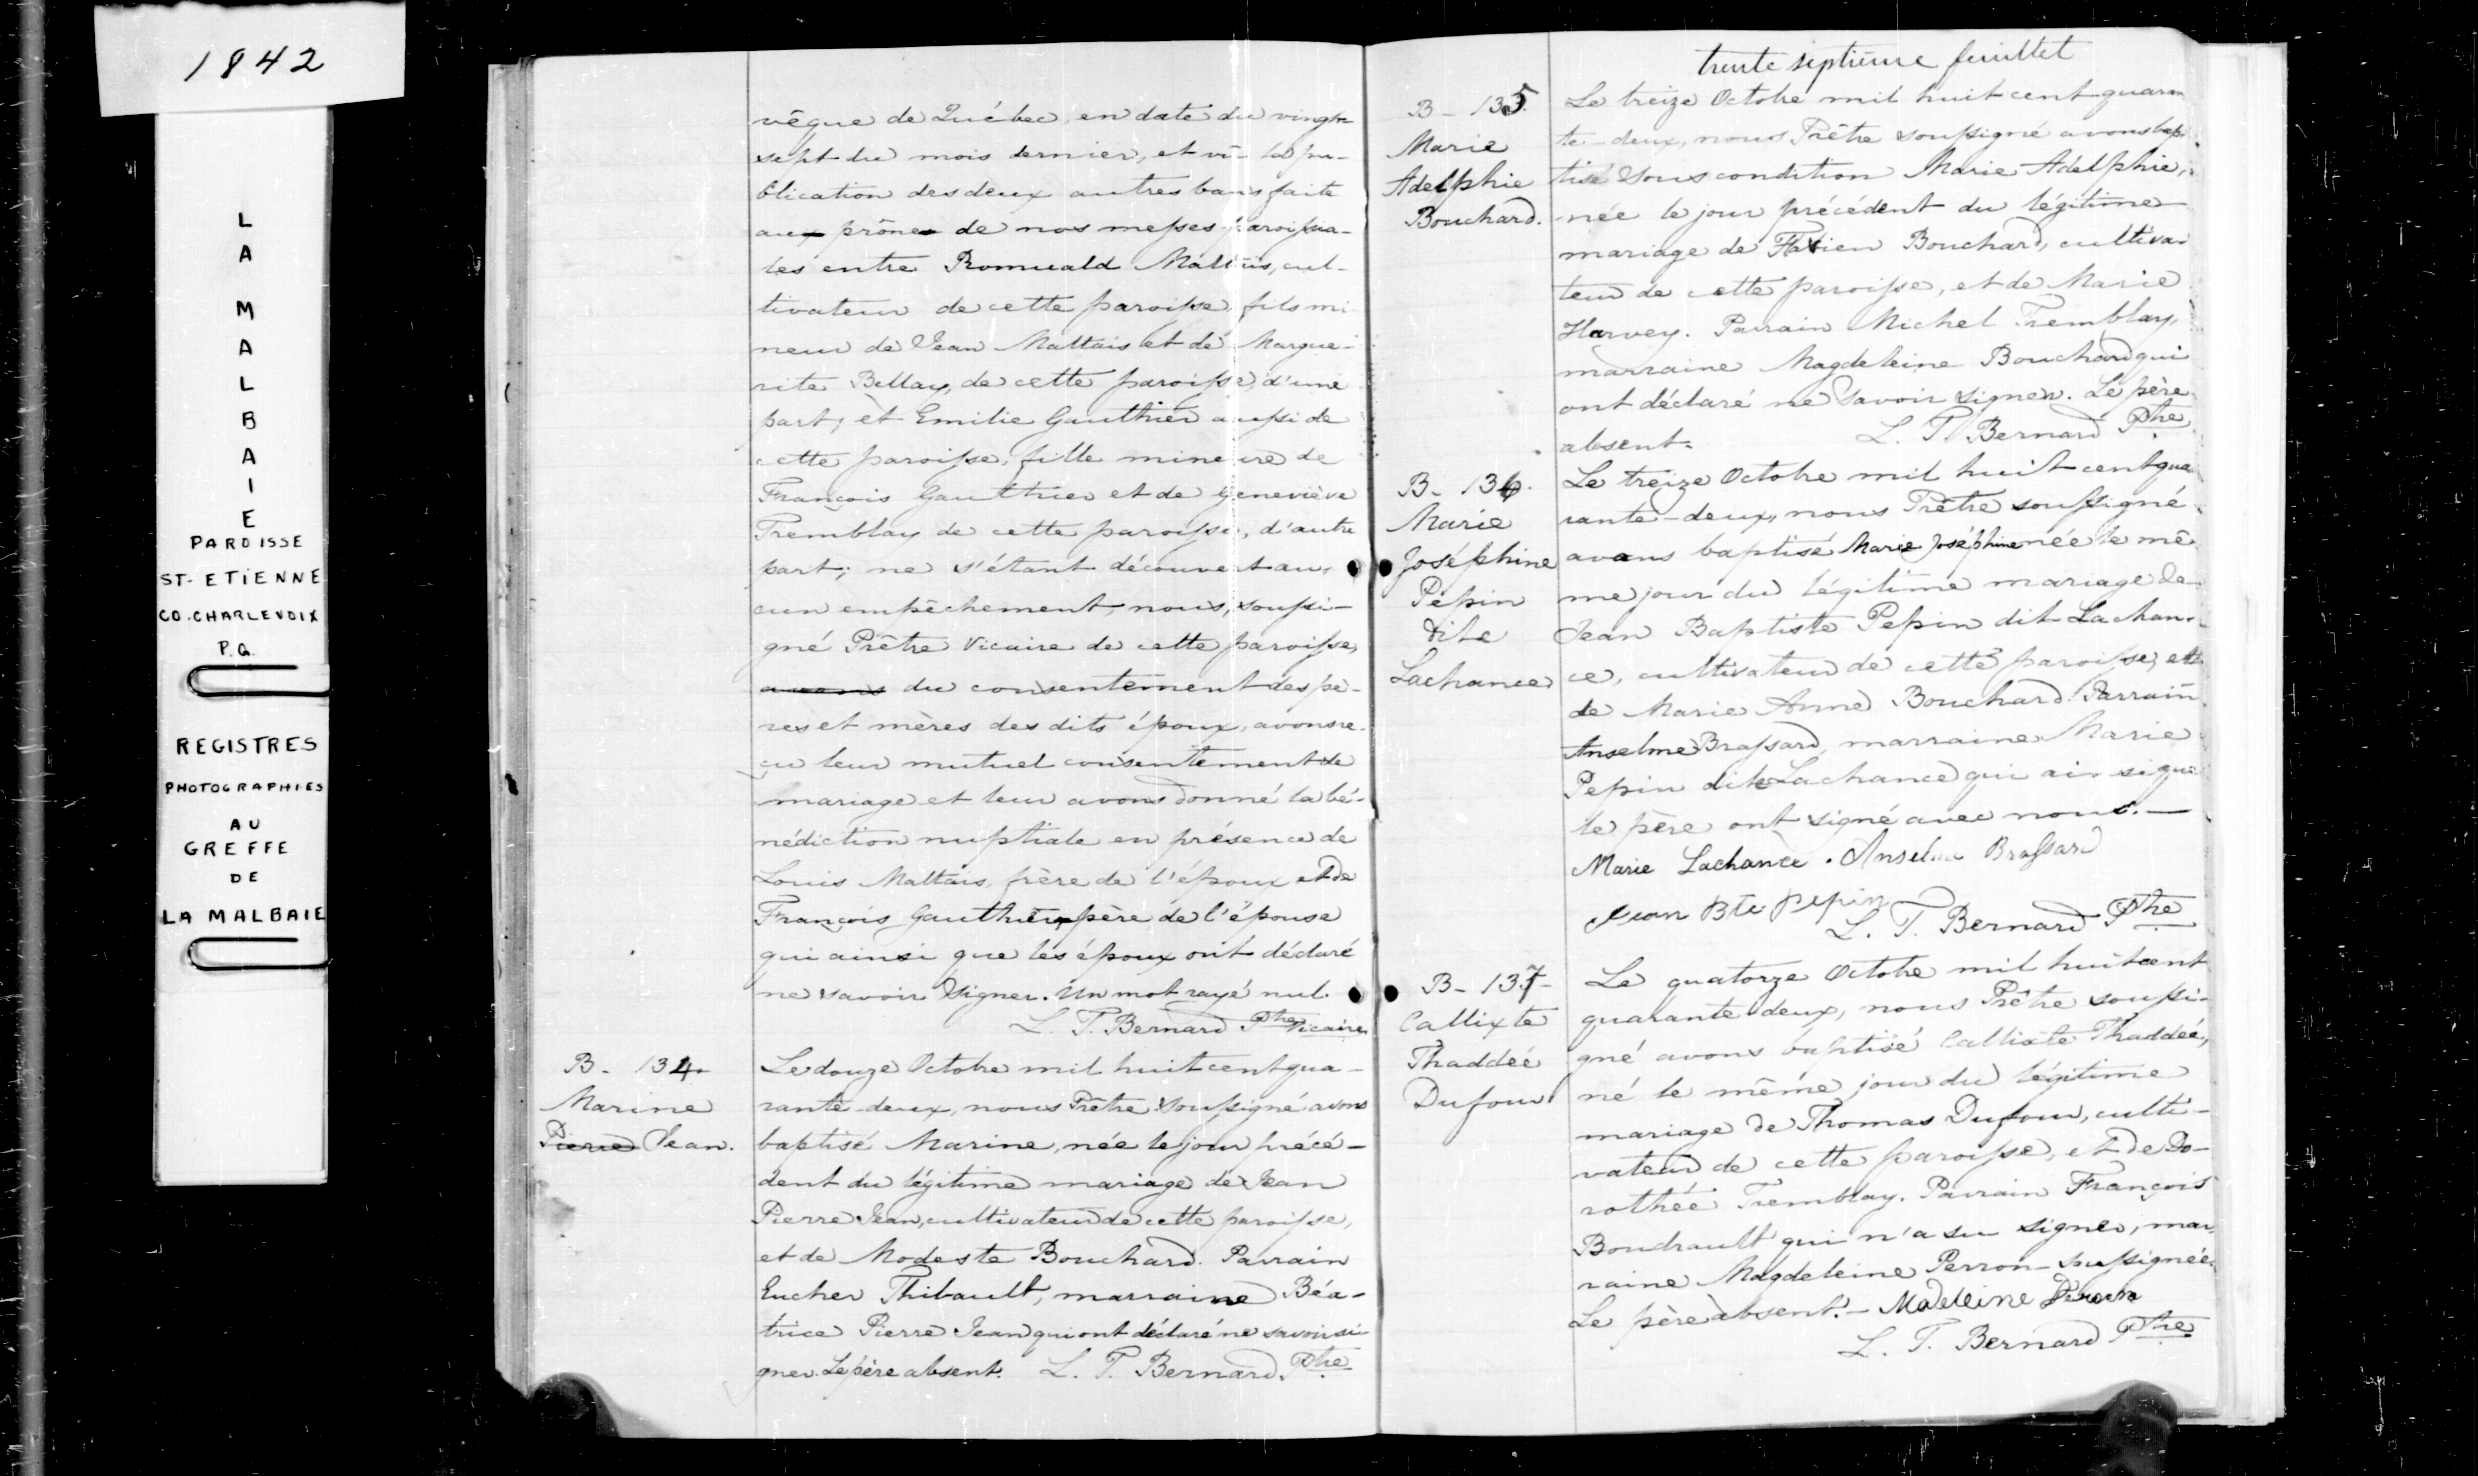 1842
L
A
M
A
L
B
A
I
E
PAROISSE
ST-ETIENNE
CO.CHARLEVOIX
P.Q.
REGISTRES
PHOTOGRAPHIES
AU
GREFFE
DE
LA MALBAIE
vêque de Québec, en date du vingt-
sept du mois dernier, et vû la pu-
blication des deux autres bans faite
aux prônes de nos messes paroissia-
les entre Romuald Maltais, cul-
tivateur de cette paroisse, fils mi-
neur de Jean Maltais et de Margue-
rite Bellay, de cette paroisse, d'une
part, et Emilie Gauthier aussi de
cette paroisse, fille mineure de
François Gauthier et de Geneviève
Tremblay de cette paroisse, d'autre
part; ne s'étant découvert au-
cun empêchement, nous, soussi-
gné Prêtre Vicaire de cette paroisse,
avons du consentement des pè-
res et mères des dits époux, avons re-
çu leur mutuel consentement de
mariage et leur avons donné la bé-
nédiction nuptiale en présence de
Louis Maltais, frère de l'époux et de
François Gauthier, père de l'épouse
qui ainsi que les époux ont déclaré
ne savoir signer. Un mot rayé nul.
L. T. Bernard Ptre Vicaire
B - 134.
Marine
Pierre Jean.
Le douze Octobre mil huit cent qua-
rante-deux, nous Prêtre soussigné avons
baptisé Marine, née le jour précé-
dent du légitime mariage de Jean
Pierre Jean, cultivateur de cette paroisse,
et de Modeste Bouchard. Parrain
Eucher Thibault, marraine Béa-
trice Pierre Jean qui ont déclaré ne savoir si-
gner. Le père absent. L. T. Bernard. Ptre
trente septième feuillet
B - 135.
Marie
Adelphie
Bouchard.
Le treize Octobre mil huit cent quaran
te-deux, nous Prêtre soussigné avons bap
tisé sous condition Marie Adelphie,
née le jour précédent du légitime
mariage de Flavien Bouchard, cultiva-
teur de cette paroisse, et de Marie
Harvey. Parrain Michel Tremblay,
marraine Magdeleine Bouchard qui
ont déclaré ne savoir signer. Le père
absent. L. T. Bernard Ptre
B - 136.
Marie
Joséphine
Pepin
dite
Lachance
Le treize Octobre mil huit cent qua
rante-deux, nous Prêtre soussigné
avons baptisé Marie Joséphine née le mê
me jour du légitime mariage de
Jean Baptiste Pepin dit Lachan-
ce, cultivateur de cette paroisse, et
de Marie Anne Bouchard. Parrain
Anselme Brassard, marraine Marie
Pepin dite Lachance qui ain si que
le père ont signé avec nous. —
Marie Lachance. Anselme Brassard
Jean Bte pepin
L. T. Bernard Ptre
B - 137 -
Callixte
Thaddée
Dufour
Le quatorze Octobre mil huit cent
quarante deux, nous Prêtre soussi-
gné avons baptisé Callixte Thaddée,
né le même jour du légitime
mariage de Thomas Dufour, culti-
vateur de cette paroisse, et de Do-
rothée Tremblay. Parrain François
Boudrault qui n'a su signer, mar
raine Magdeleine Perron soussignée.
Le père absent. — Madeleine Peron
L. T. Bernard Ptre